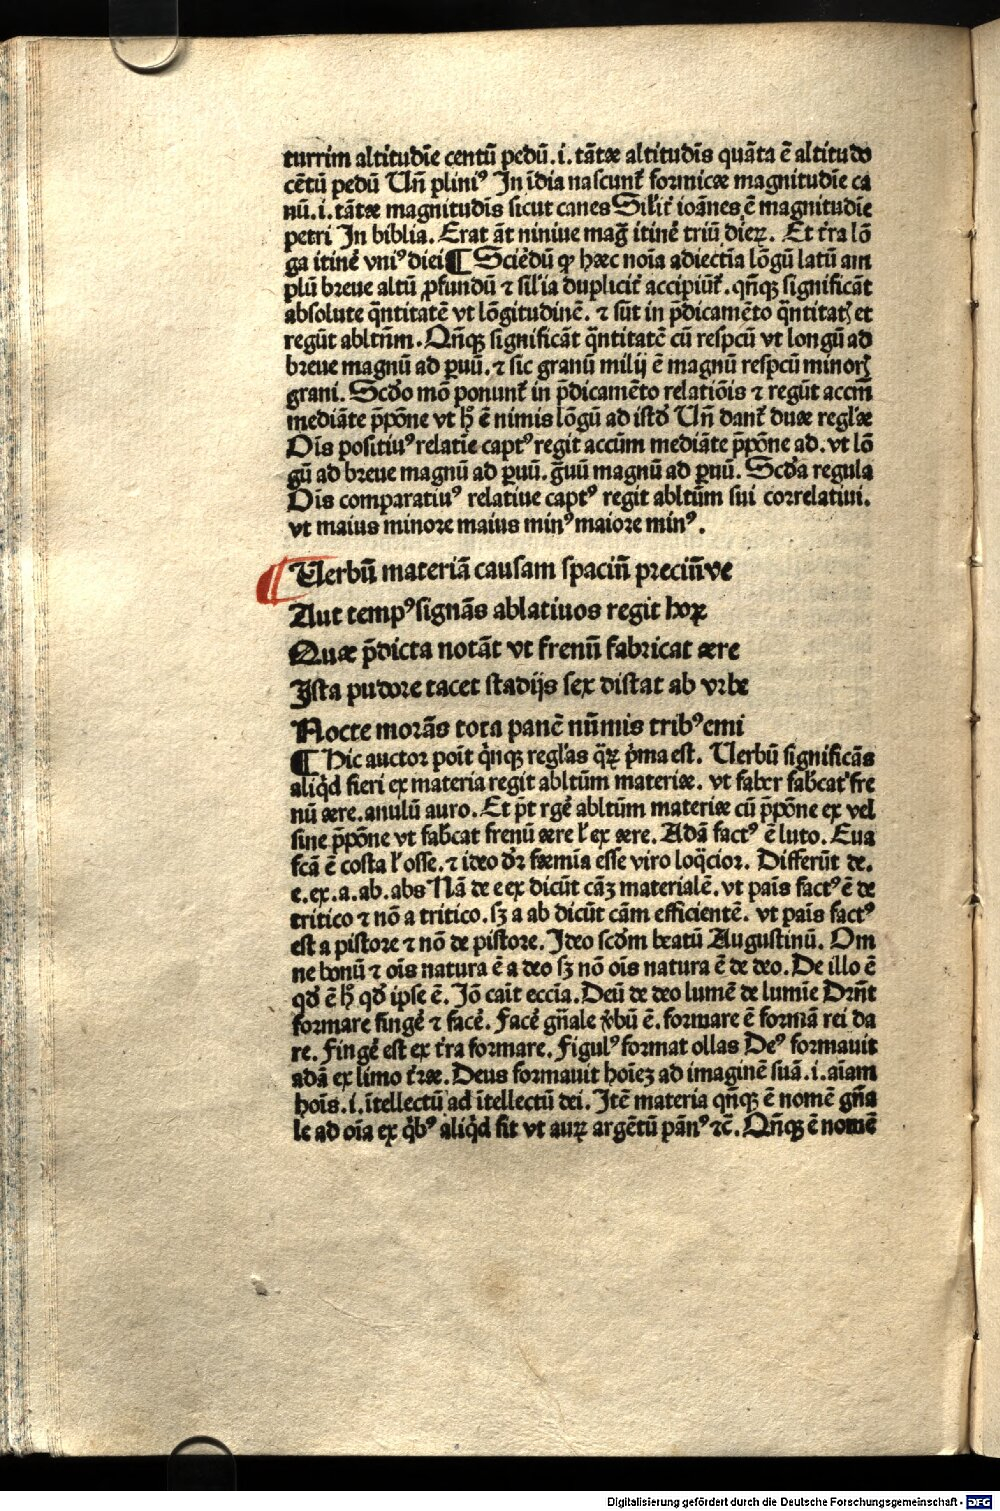 turrim altitudīe centū pedū.i.tātæ altitudīs quāta ē altitudo
cētū pedū Un̄ pliniꝰ In īdia nascunt᷑ formicæ magnitudīe ca
nū.i.tātæ magnitudīs sicut canes Silit᷑ ioānes ē magnitudīe
petri In biblia. Erat āt niniue mag̃ itinē triū dieꝝ. Et t̄ra lō
ga itinē vniꝰ diei ¶ Sciēdū ꝙ hæc noīa adiectīa lōgū latū am
plū breue altū ꝓfundū ⁊ sil'ia duplicit᷑ accipiūt᷑. qn̄qꝫ significāt
absolute q̄ntitatē vt lōgitudinē. ⁊ sūt in p̄dicamēto q̄ntitatꝭ et
regūt abltīm. Qn̄qꝫ significāt q̄ntitatē cū respcū vt longū ad
breue magnū ad ꝑuū. ⁊ sic granū milij ē magnū respcū minorꝭ
grani. Scd̄o mō ponunt᷑ in p̄dicamēto relatiōis ⁊ regūt accm̄
mediāte p̄pōne vt h̄ ē nimis lōgū ad istd̄ Un̄ dant᷑ duæ regl'æ
Oīs positiuꝰ relatīe captꝰ regit accūm mediāte p̄pōne ad. vt lō
gū ad breue magnū ad ꝑuū. g̃uū magnū ad ꝑuū. Scd̄a regula
Oīs comparatiuꝰ relatiue captꝰ regit abltūm sui correlatiui.
vt maius minore maius minꝰ maiore minꝰ.
¶ Uerbū materiā causam spaciū preciūve
Aut tempꝰ signās ablatiuos regit hoꝝ
Quæ p̄dicta notāt vt frenū fabricat ære
Ista pudore tacet stadijs sex distat ab vrbe
Nocte morās tota panē nūmis tribꝰ emi
¶ Hic auctor poīt q̇nqꝫ regl'as q̄ꝝ p̄ma est. Uerbū significās
aliq̇d fieri ex materia regit abltūm materiæ. vt faber fab̄cat fre
nū ære. anulū auro. Et p̄t rgē abltūm materiæ cū p̄pōne ex vel
sine p̄pōne vt fab̄cat frenū ære l' ex ære. Adā factꝰ ē luto. Eua
fcā ē costa l' osse. ⁊ ideo dr̄ fæmīa esse viro loq̄cior. Differūt de.
e. ex. a. ab. abs Nā de e ex dicūt cāꝫ materialē. vt paīs factꝰ ē de
tritico ⁊ nō a tritico. sꝫ a ab dicūt cām efficientē. vt paīs factꝰ
est a pistore ⁊ nō de pistore. Ideo scd̄m beatū Augustinū. Om
ne bonū ⁊ oīs natura ē a deo sꝫ nō oīs natura ē de deo. De illo ē
qd̄ ē h̄ qd̄ ipse ē. Iō caīt eccīa. Deū de deo lumē de lumīe Drn̄t
formare fingē ⁊ facē. Facē gn̄ale v̄bū ē. formare ē formā rei da
re. Fingē est ex t̄ra formare. Figulꝰ format ollas Deꝰ formauit
adā ex limo t̄ræ. Deus formauit hoīeꝫ ad imaginē suā.i.aīam
hoīs.i.ītellectū ad ītellectū dei. Itē materia qn̄qꝫ ē nomē gn̄a
le ad oīa ex q̇bꝰ aliq̇d fit vt auꝝ argētū pānꝰ ⁊c̄. Qn̄qꝫ ē nomē
Digitalisierung gefördert durch die Deutsche Forschungsgemeinschaft - DFG